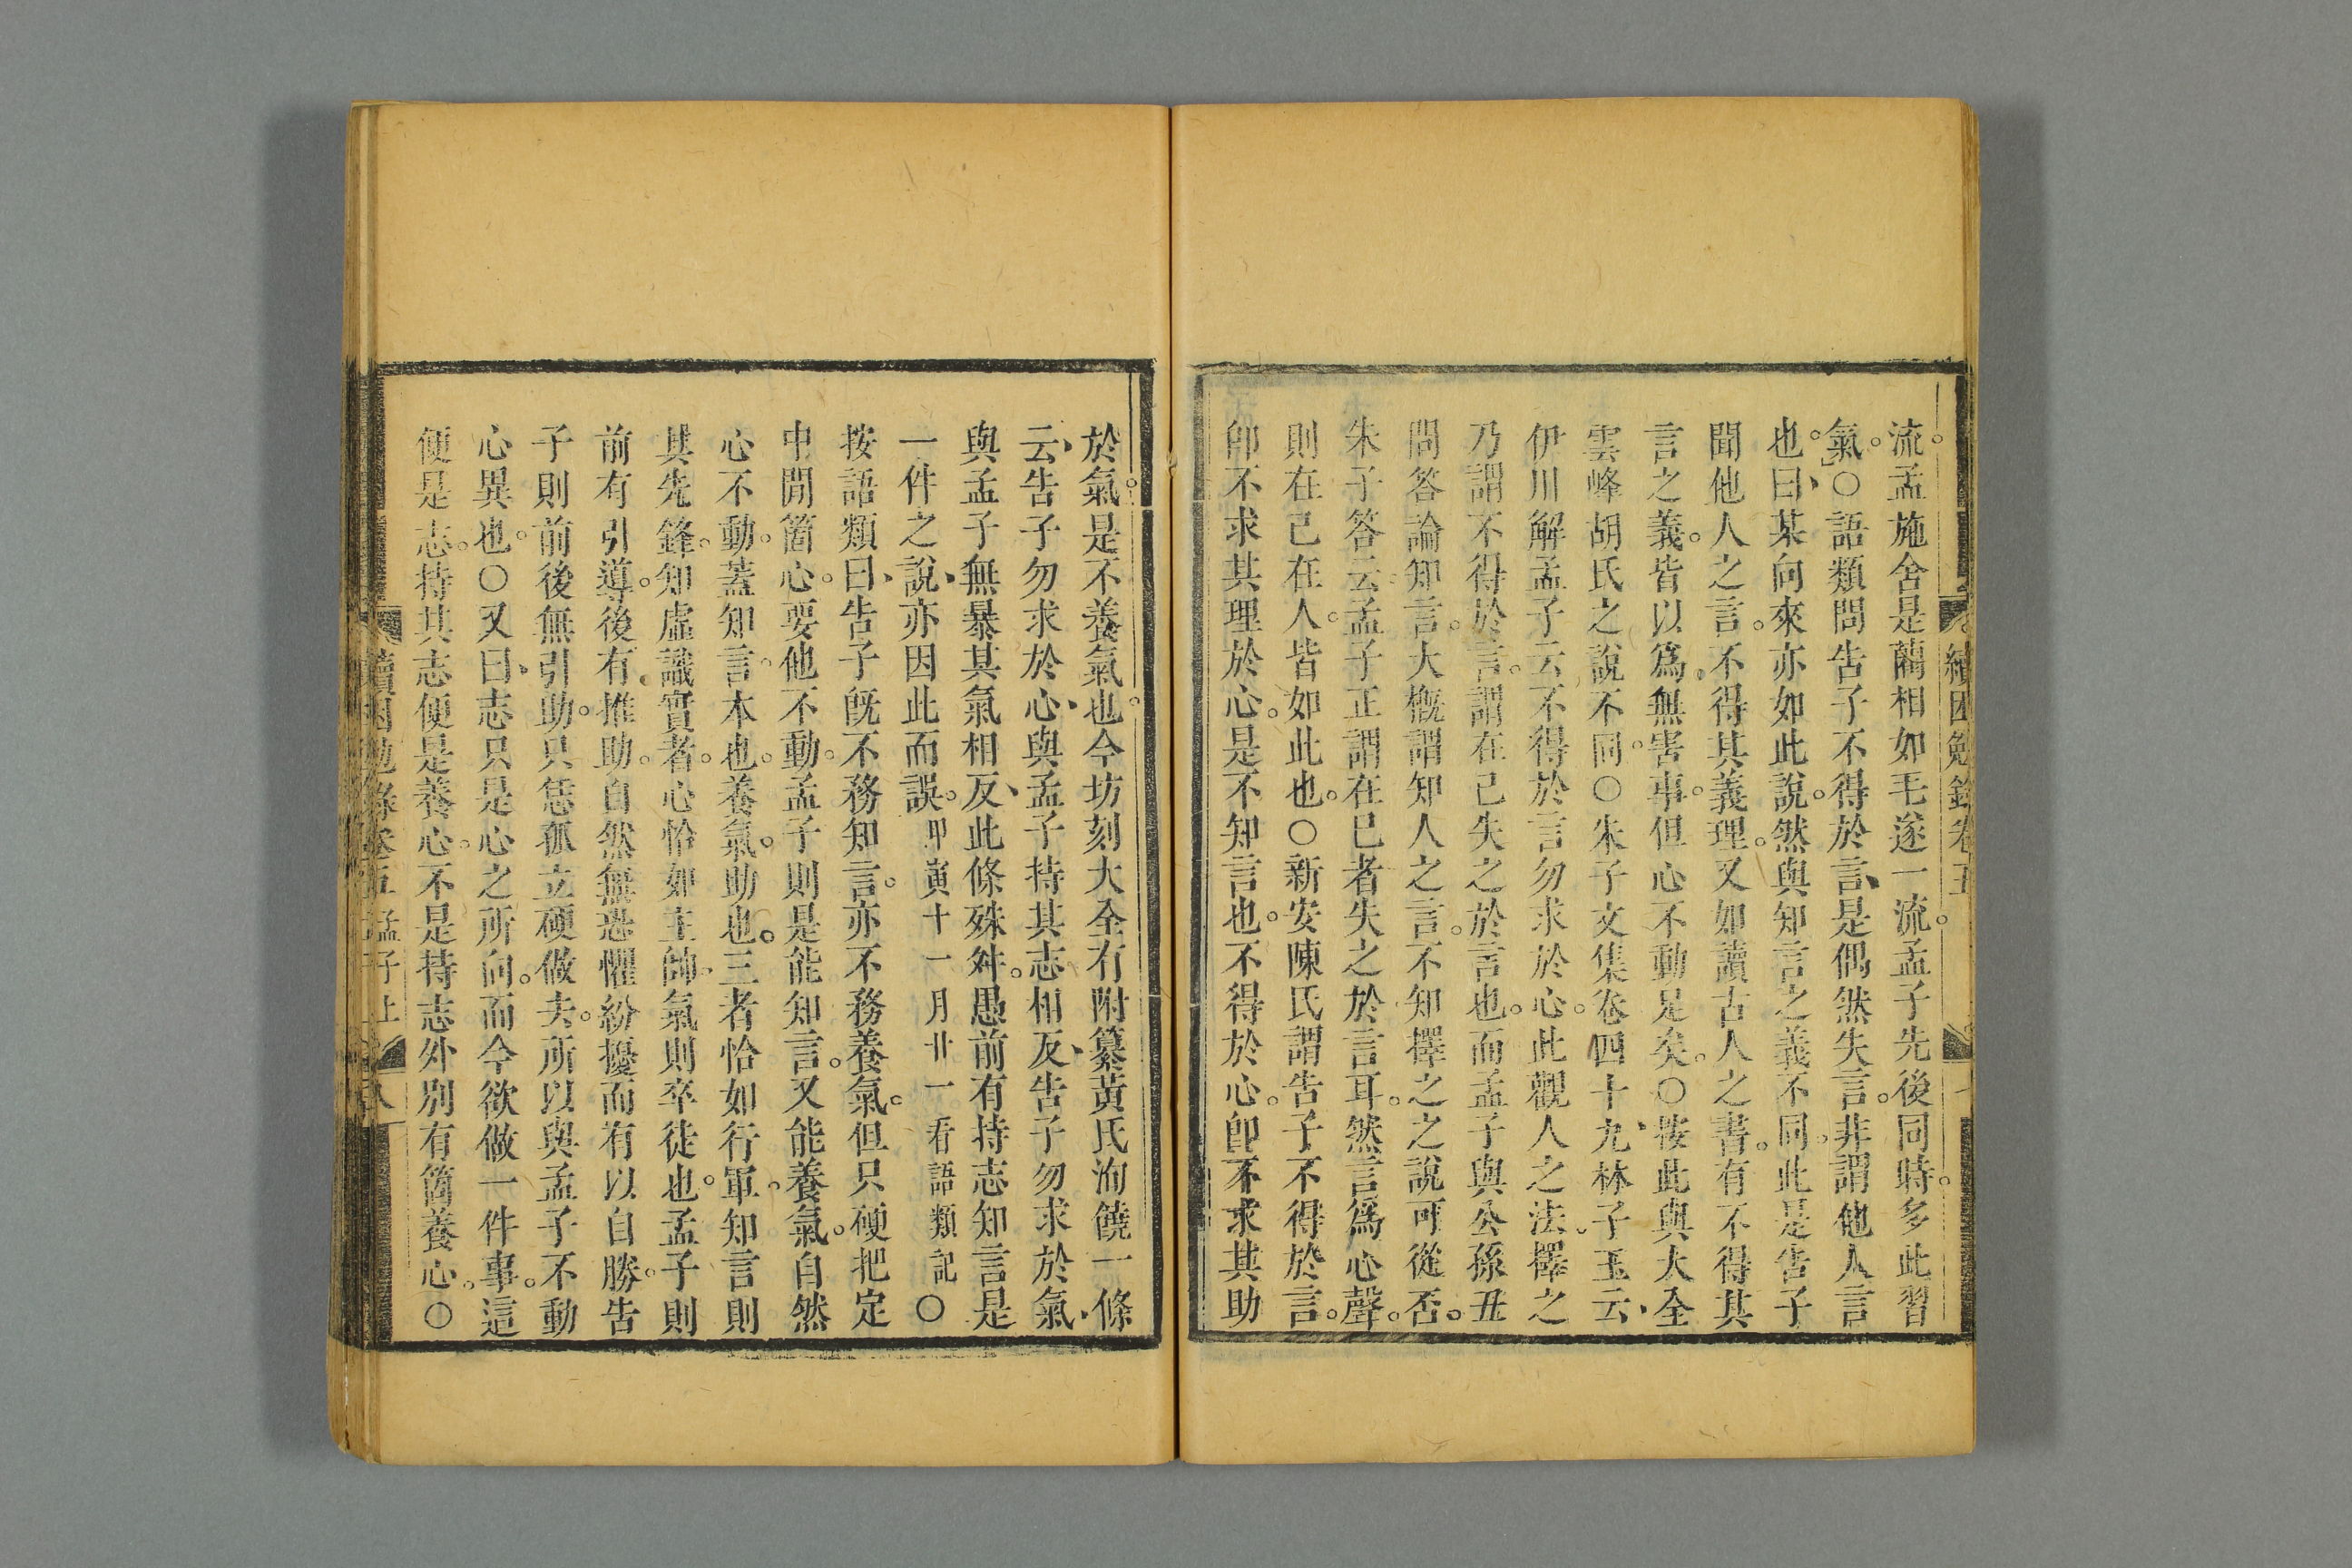 流孟施舍是藺相如毛遂一流孟子先後同時多此習
氣○語類問告子不得於言是偶然失言非謂他人言
也曰某向來亦如此說然與知言之義不同此是告子
聞他人之言不得其義理又如讀古人之書有不得其
言之義皆以爲無害事但心不動足矣○按此與大全
雲峰胡氏之說不同○朱子文集卷四十九林子玉云
伊川解孟子云不得於言勿求於心此觀人之法擇之
乃謂不得於言謂在己失之於言也而孟子與公孫丑
問答論知言大槪謂知人之言不知擇之之說可從否
朱子答云孟子正謂在已者失之於言耳然言爲心聲
則在己在人皆如此也○新安陳氏謂告子不得於言
卽不求其理於心是不知言也不得於心卽不求其助
續困勉錄卷五
於氣是不養氣也今坊刻大全有附纂黃氏洵饒一條
云告子勿求於心與孟子持其志相反告子勿求於氣
與孟子無暴其氣相反此條殊舛愚前有持志知言是
一件之說亦因此而誤甲寅十一月廿一看語類記○
按語類曰告子旣不務知言亦不務養氣但只硬把定
中閒箇心要他不動孟子則是能知言又能養氣自然
心不動蓋知言本也養氣助也三者恰如行軍知言則
其先鋒知虛識實者心恰如主帥氣則卒徒也孟子則
前有引導後有推助自然無恐懼紛擾而有以自勝告
子則前後無引助只恁孤立硬做去所以與孟子不動
心異也○又曰志只是心之所向而今欲做一件事這
便是志持其志便是養心不是持志外別有箇養心○
續困勉錄卷五 孟子上 八